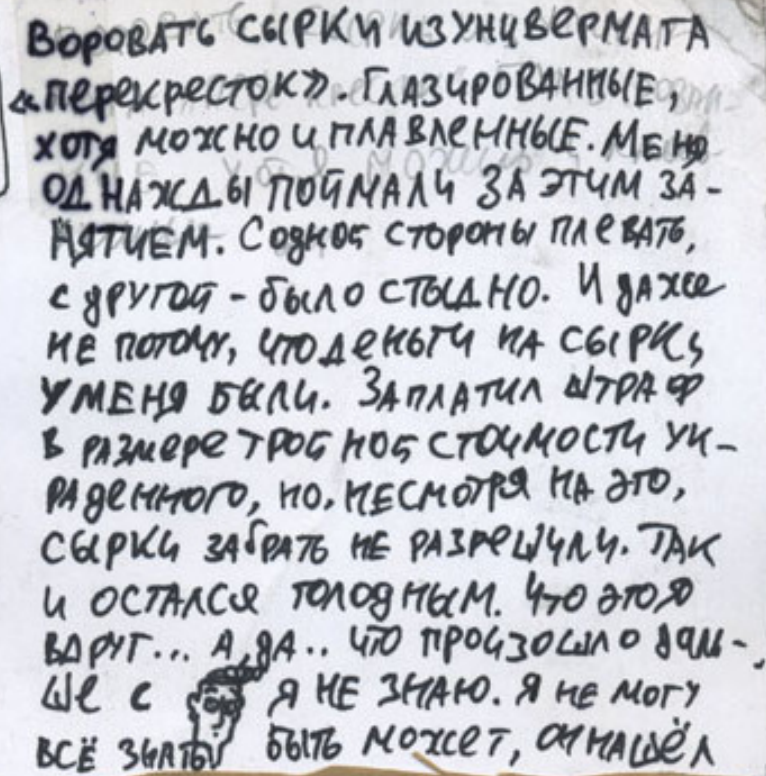 ВОРОВАТЬ СЫРКИ ИЗ УНИВЕРМАГА
«ПЕРЕКРЕСТОК». ГЛАЗИРОВАННЫЕ,
ХОТЯ МОЖНО И ПЛАВЛЕННЫЕ. МЕНЯ
ОДНАЖДЫ ПОЙМАЛИ ЗА ЭТИМ ЗА-
НЯТИЕМ. С ОДНОЙ СТОРОНЫ ПЛЕВАТЬ,
С ДРУГОЙ - БЫЛО СТЫДНО. И ДАЖЕ
НЕ ПОТОМУ, ЧТО ДЕНЬГИ НА СЫРКИ
У МЕНЯ БЫЛИ. ЗАПЛАТИЛ ШТРАФ
В РАЗМЕРЕ ТРОЙНОЙ СТОИМОСТИ УК-
РАДЕННОГО, НО, НЕСМОТРЯ НА ЭТО,
СЫРКИ ЗАБРАТЬ НЕ РАЗРЕШИЛИ. ТАК
И ОСТАЛСЯ ГОЛОДНЫМ. ЧТО ЭТО Я
ВДРУГ... А, ДА.. ЧТО ПРОИЗОШЛО ДАЛЬ-
ШЕ С Я НЕ ЗНАЮ. Я НЕ МОГУ
ВСЁ ЗНАТЬ БЫТЬ МОЖЕТ, ОН НАШЁЛ